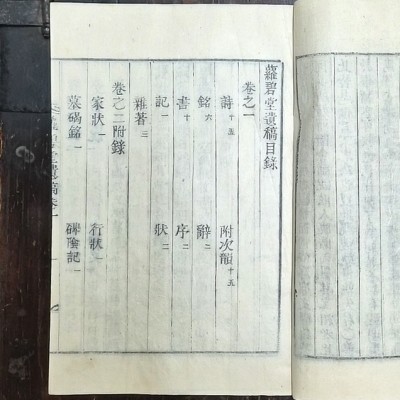 蘿碧堂遺稿目錄
卷之一
詩十五 附次韻十五
銘六 辭二
書十 序二
記一 狀二
雜著三
卷之二附錄
家狀一 行狀一
墓碣銘一 碑陰記一